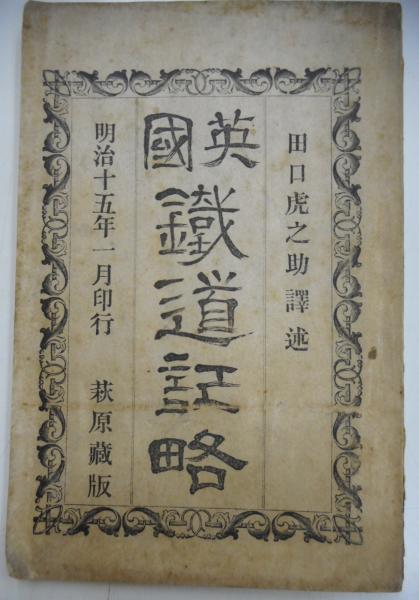 田口虎之助譯述
英國鐵道記略
明治十五年一月印行　萩原藏版